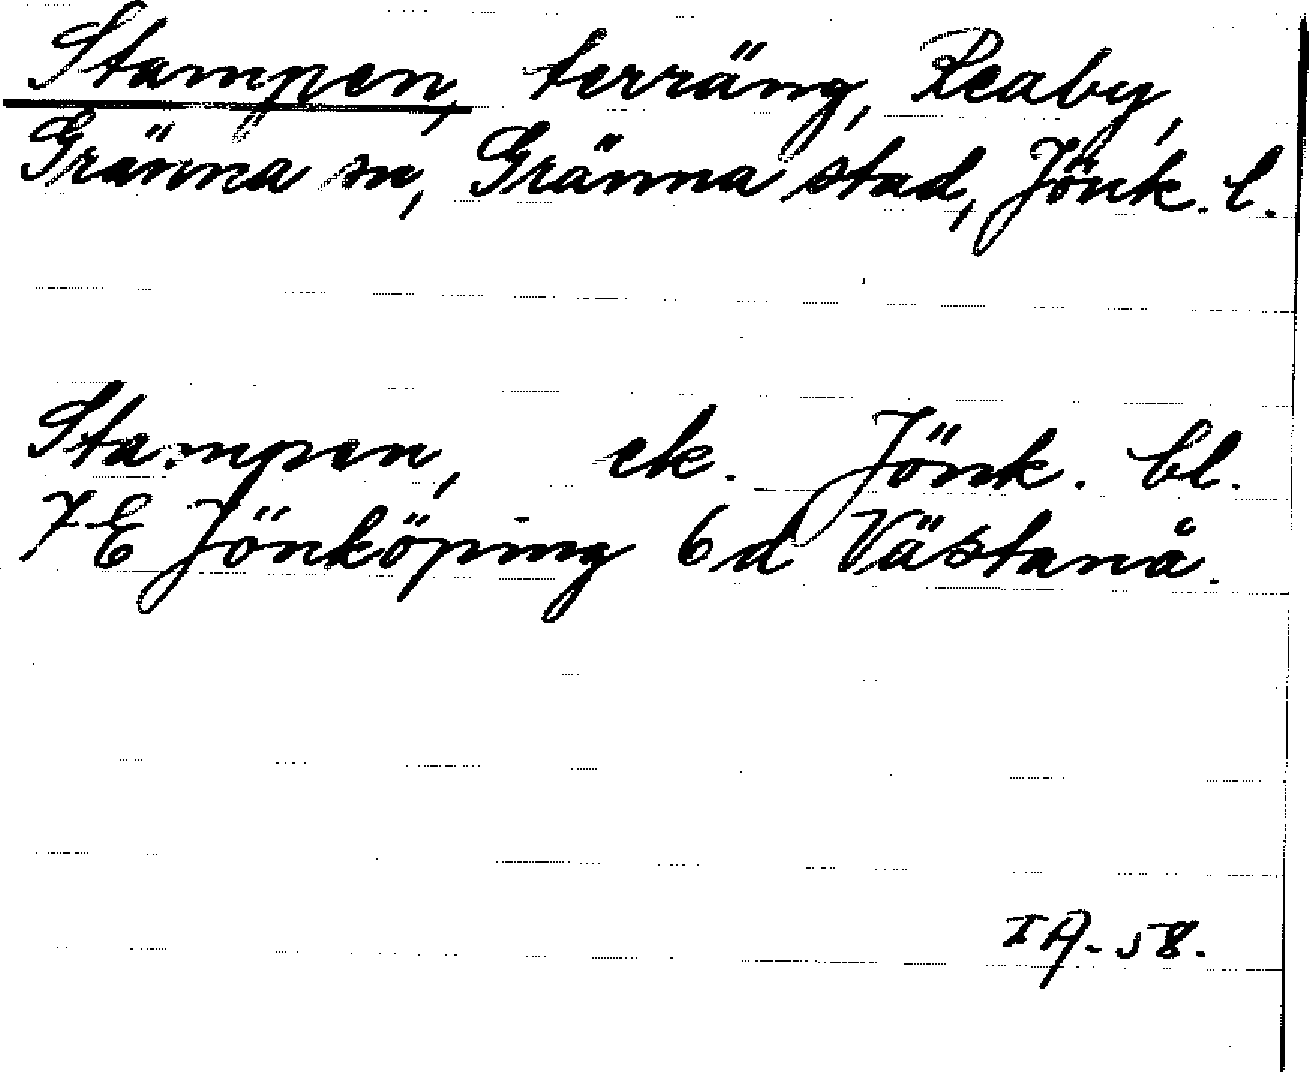 Stampen, terräng, Reaby,
Gränna sn, Gränna stad, Jönk. l.
Stampen, ek. Jönk. bl.
7 E Jönköping 6 d Västanå.
IA-58.